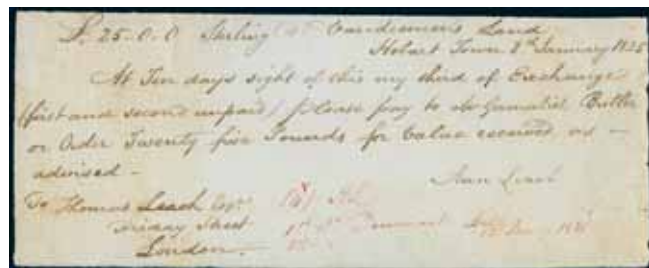 £. 25.0.0 Sterling Vandiemen's Land
Hobart Town 8th January 1825
At Ten days sight of this my third of Exchange
(first and second unpaid) please pay to Mr Gamaliel Butler
or Order Twenty five Pounds for Value received as
advised -
Ann Leach
To Thomas Leach Esqr
Friday Street
London.